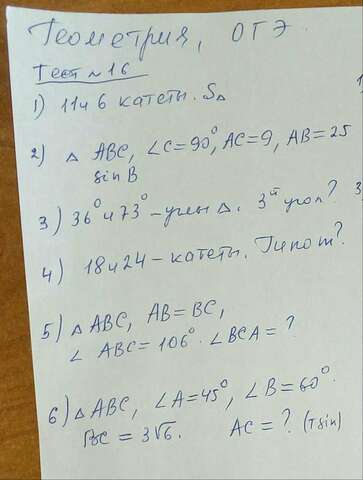 Геометрия, ОГЭ.
Тест №16
1) 11 и 6 катеты. S△
2) △ ABC, ∠C=90°, AC=9, AB=25
sin B
3) 36° и 73° – углы △. 3й угол?
4) 18 и 24 – катеты. Гипот?
5) △ ABC, AB=BC,
∠ ABC=106°. ∠BCA=?
6) △ ABC, ∠A=45°, ∠B=60°.
BC=3√6. AC=? (Tsin)